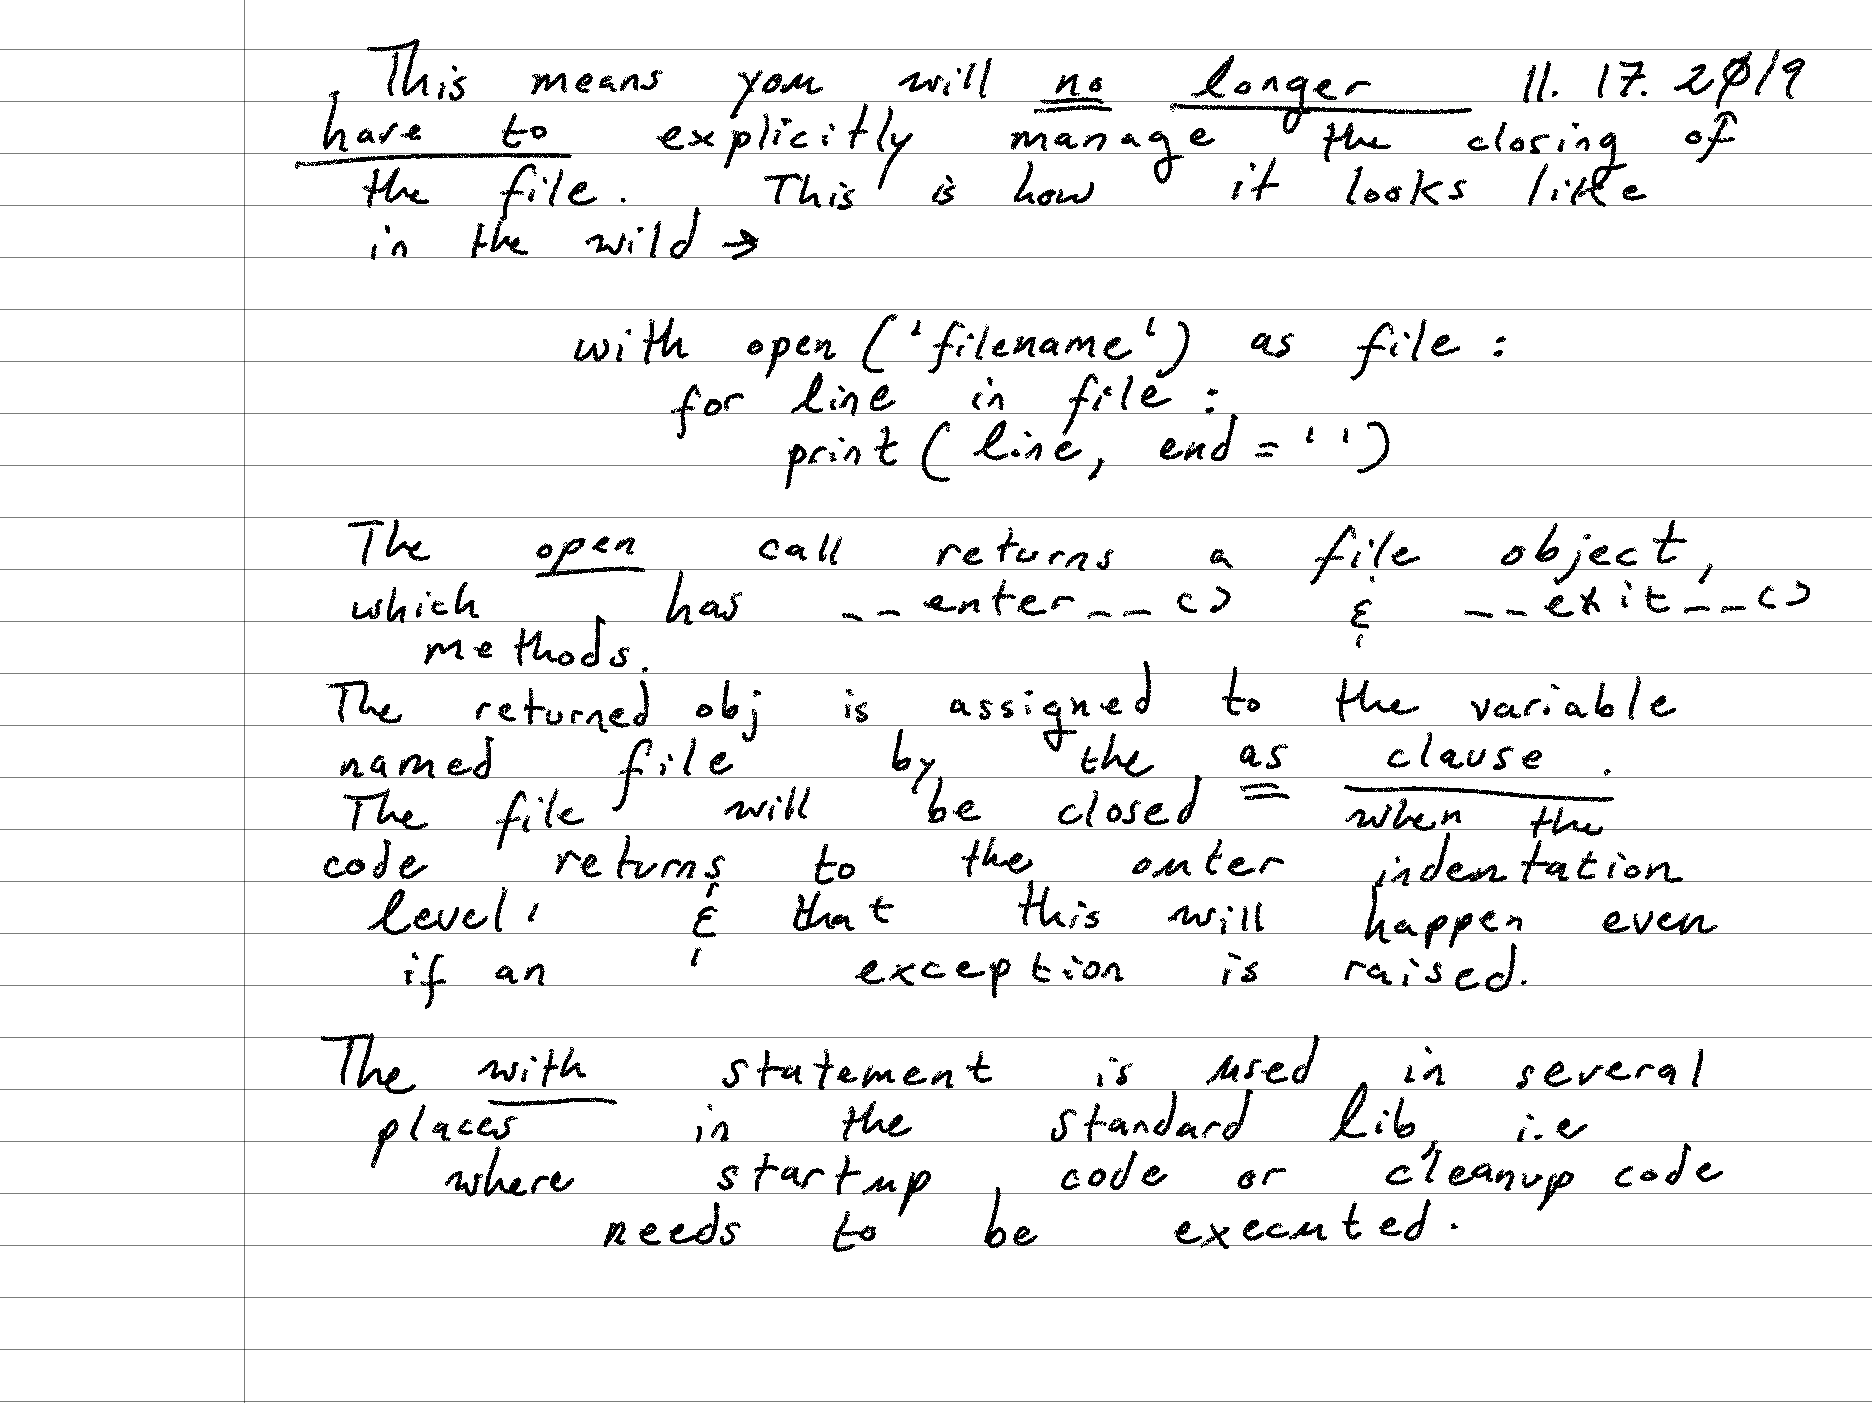 This means you will no longer 11. 17. 2019
have to explicitly manage the closing of
the file. This is how it looks like
in the wild →
with open ('filename') as file :
for line in file :
print ( line, end = ' ' )
The open call returns a file object,
which has __enter__() & __exit__()
methods.
The returned obj is assigned to the variable
named file by the as clause.
The file will be closed when the
code returns to the outer indentation
level, & that this will happen even
if an exception is raised.
The with statement is used in several
places in the standard lib, i.e
where startup code or cleanup code
needs to be executed.